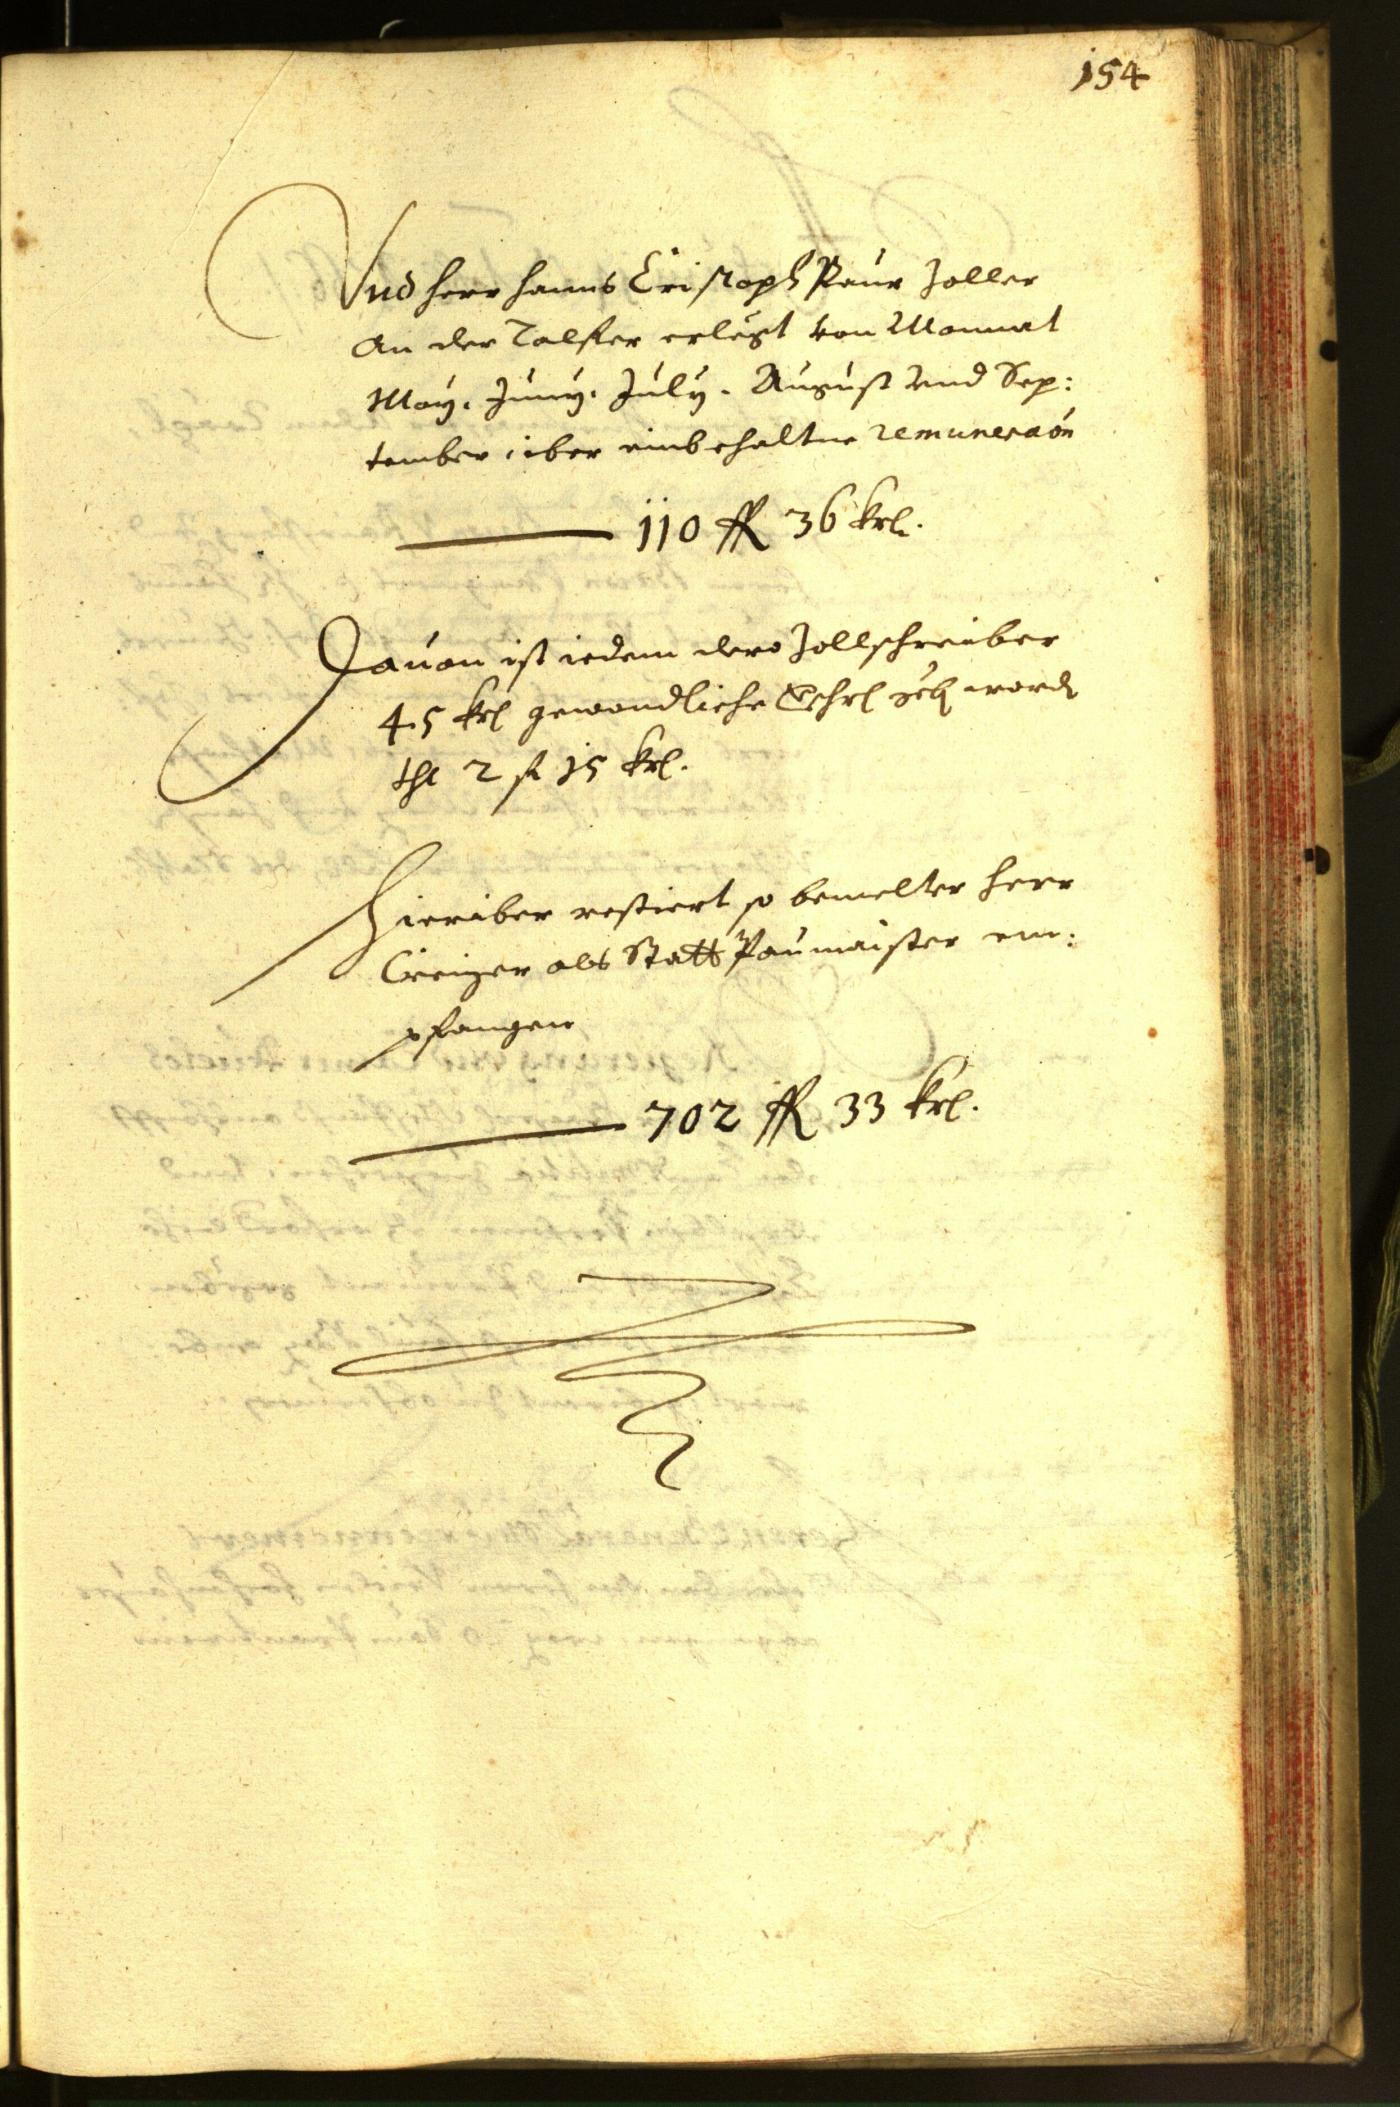 154
Und herr hanns Cristoph Paur Zoller
An der Talfer erlegt von Monnat
May. Juny. July. August und Sep:
tember iber einbehaltne remuneraön
110 fl 36 krl.
Dauon ist iedem dero Zollschreiber
45 krl gewondliche word
tht 2 fl 15 krl.
Hieriber restiert so bemelter herr
Creizer als Statt Paumaister em:
pfangen
702 fl 33 krl.